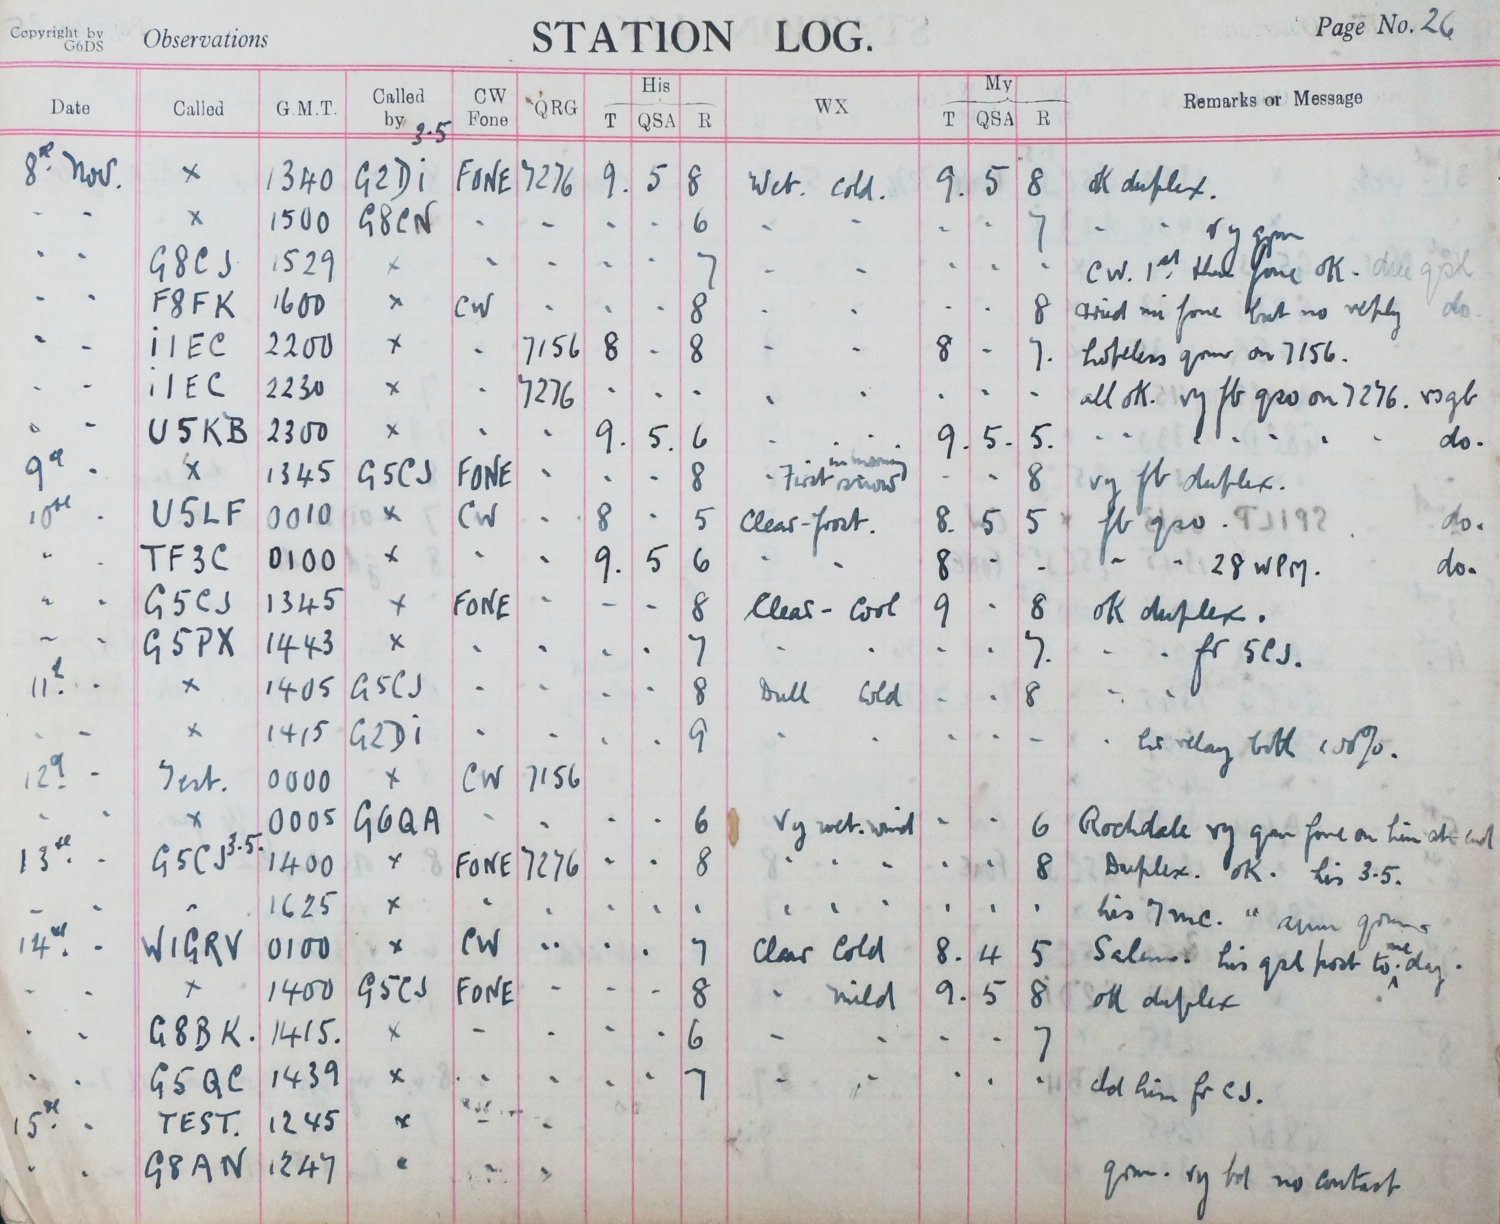 Copyright by G6DS Observations STATION LOG. Page No. 26
His My
Date Called G.M.T. Called by 3.5 CW Fone QRG T QSA R WX T QSA R Remarks or Message
8th Nov. x 1340 G2Di FONE 7276 9. 5 8 Wet. Cold. 9. 5 8 ok duplex.
- - x 1500 G8CN - - - - 6 - - - - 7 - - vy qrm
" - G8CJ 1529 x - - - - 7 - - - - - CW. 1st then fone OK. due qsl
- - F8FK 1600 x CW - - - 8 - - - - 8 tried mi fone but no reply do
" - i1EC 2200 x - 7156 8 - 8 - - 8 - 7. hopeless qrm on 7156.
- - i1EC 2230 x - 7276 - - - - - - - - all ok. vy fb qso on 7276. rsgb
- - U5KB 2300 x - - 9. 5. 6 - - - 9. 5. 5. - - - - - - - do.
9th - x 1345 G5CJ FONE - - - 8 - First snow in morning - - 8 vy fb duplex.
10th - U5LF 0010 x CW - 8 - 5 Clear-frost. 8. 5 5 fb qso. do.
- - TF3C 0100 x - - 9. 5 6 - - 8 - - - - - 28 WPM. do.
- - G5CJ 1345 x FONE - - - 8 Clear - Cool 9 - 8 ok duplex.
- - G5PX 1443 x - - - - 7 - - - - 7. - - fr 5CJ.
11th - x 1405 G5CJ - - - - 8 Dull Cold - - 8 - -
- - x 1415 G2Di - - - - 9 - - - - - - his relay both 100%.
12th - Test. 0000 x CW 7156
- - x 0005 G6QA - - - - 6 Vy wet. wind - - 6 Rochdale vy qrm fone on him at end
13th - G5CJ 3.5. 1400 x FONE 7276 - - 8 - - - - - - 8 Duplex. OK. his 3.5.
- - - 1625 x - - - - - - - - - - - - his 7mc. "
14th - W1GRV 0100 x CW " - - 7 Clear Cold 8. 4 5 Salem. his qsl post to me. day.
- - x 1400 G5CJ FONE - - - 8 - mild 9. 5 8 ok duplex
- - G8BK. 1415. x - - - - 6 - - - - 7
- - G5QC 1439 x - - - - 7 - - - - - cld him fr CJ.
15th - TEST. 1245 x - -
- - G8AN 1247 " - - qrm. vy bd no contact